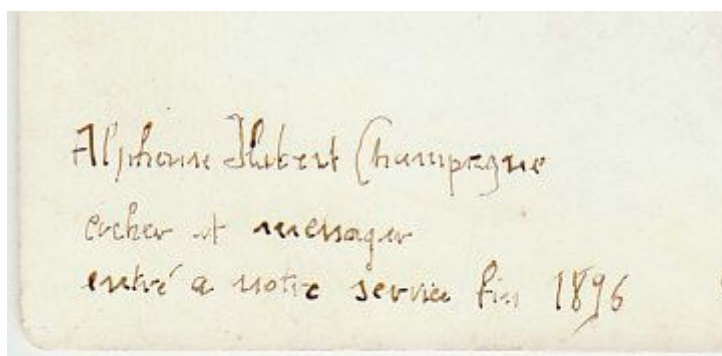 Alphonse Hubert Champagne
cocher et messager
entré a notre service fin 1896